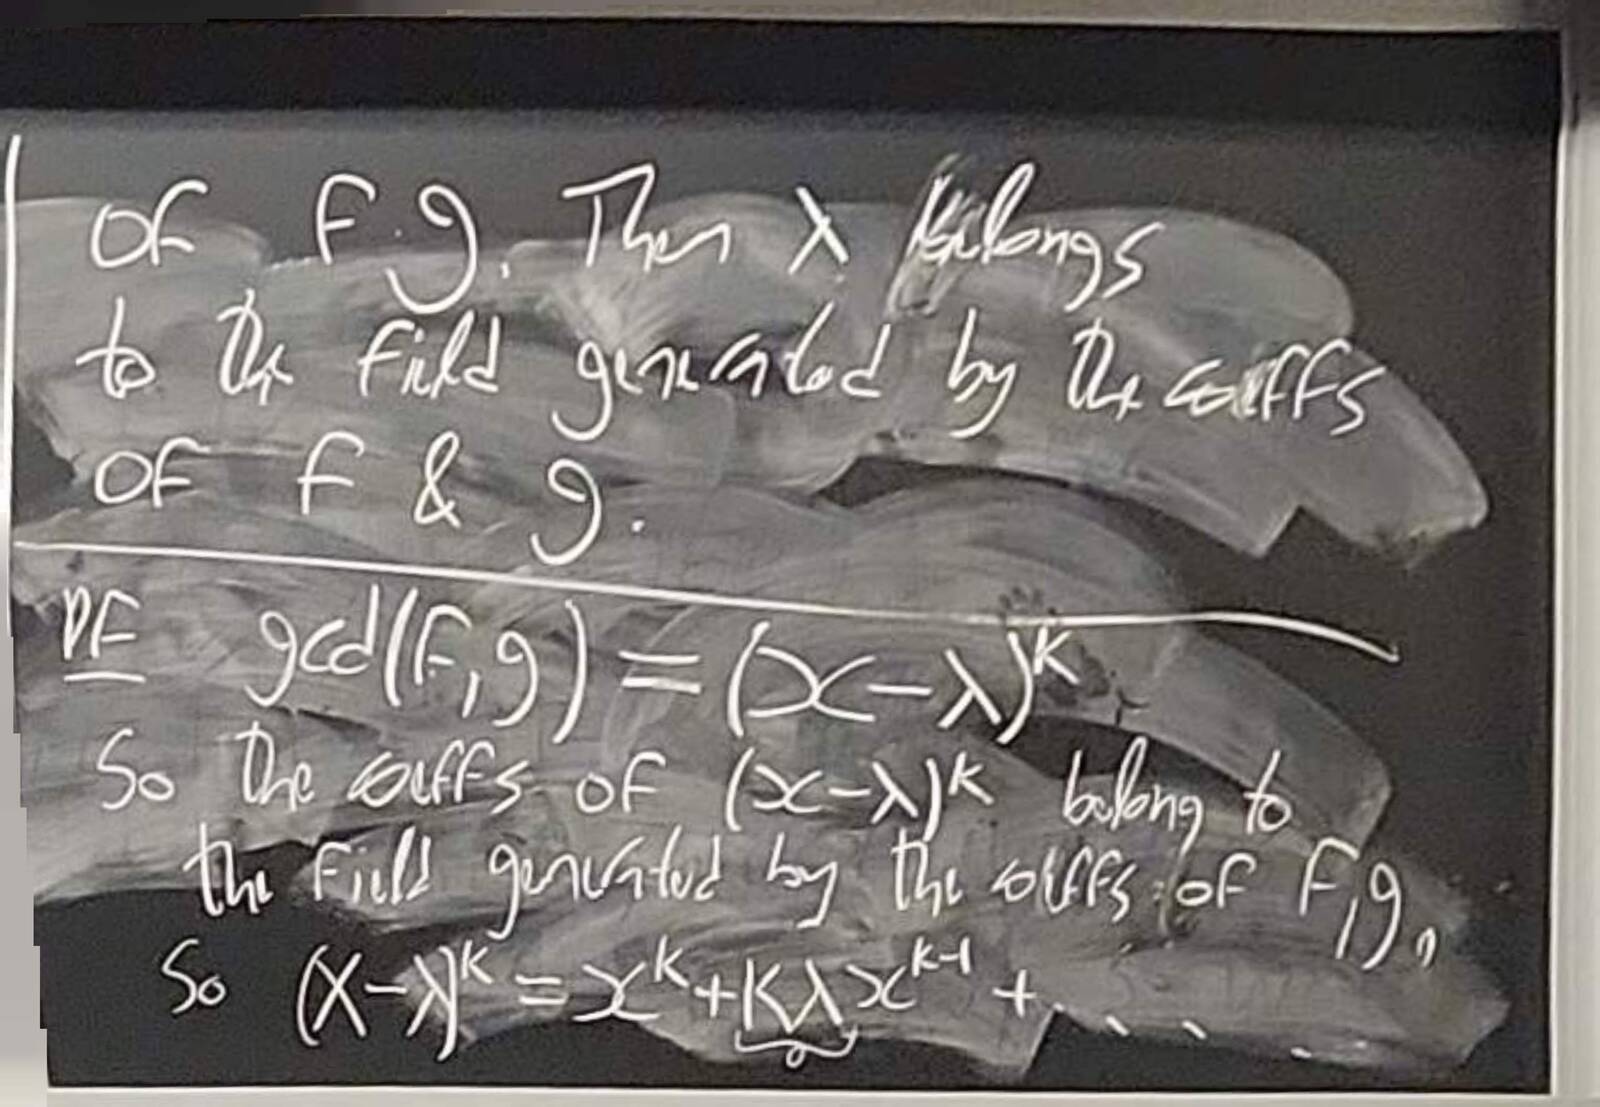 of f, g. Then λ belongs
to the field generated by the coeffs
of f & g.
PF gcd(f,g) = (x-λ)^k
So the coeffs of (x-λ)^k belong to
the field generated by the coeffs of f, g,
So (x-λ)^k = x^k + kλx^{k-1} + ....